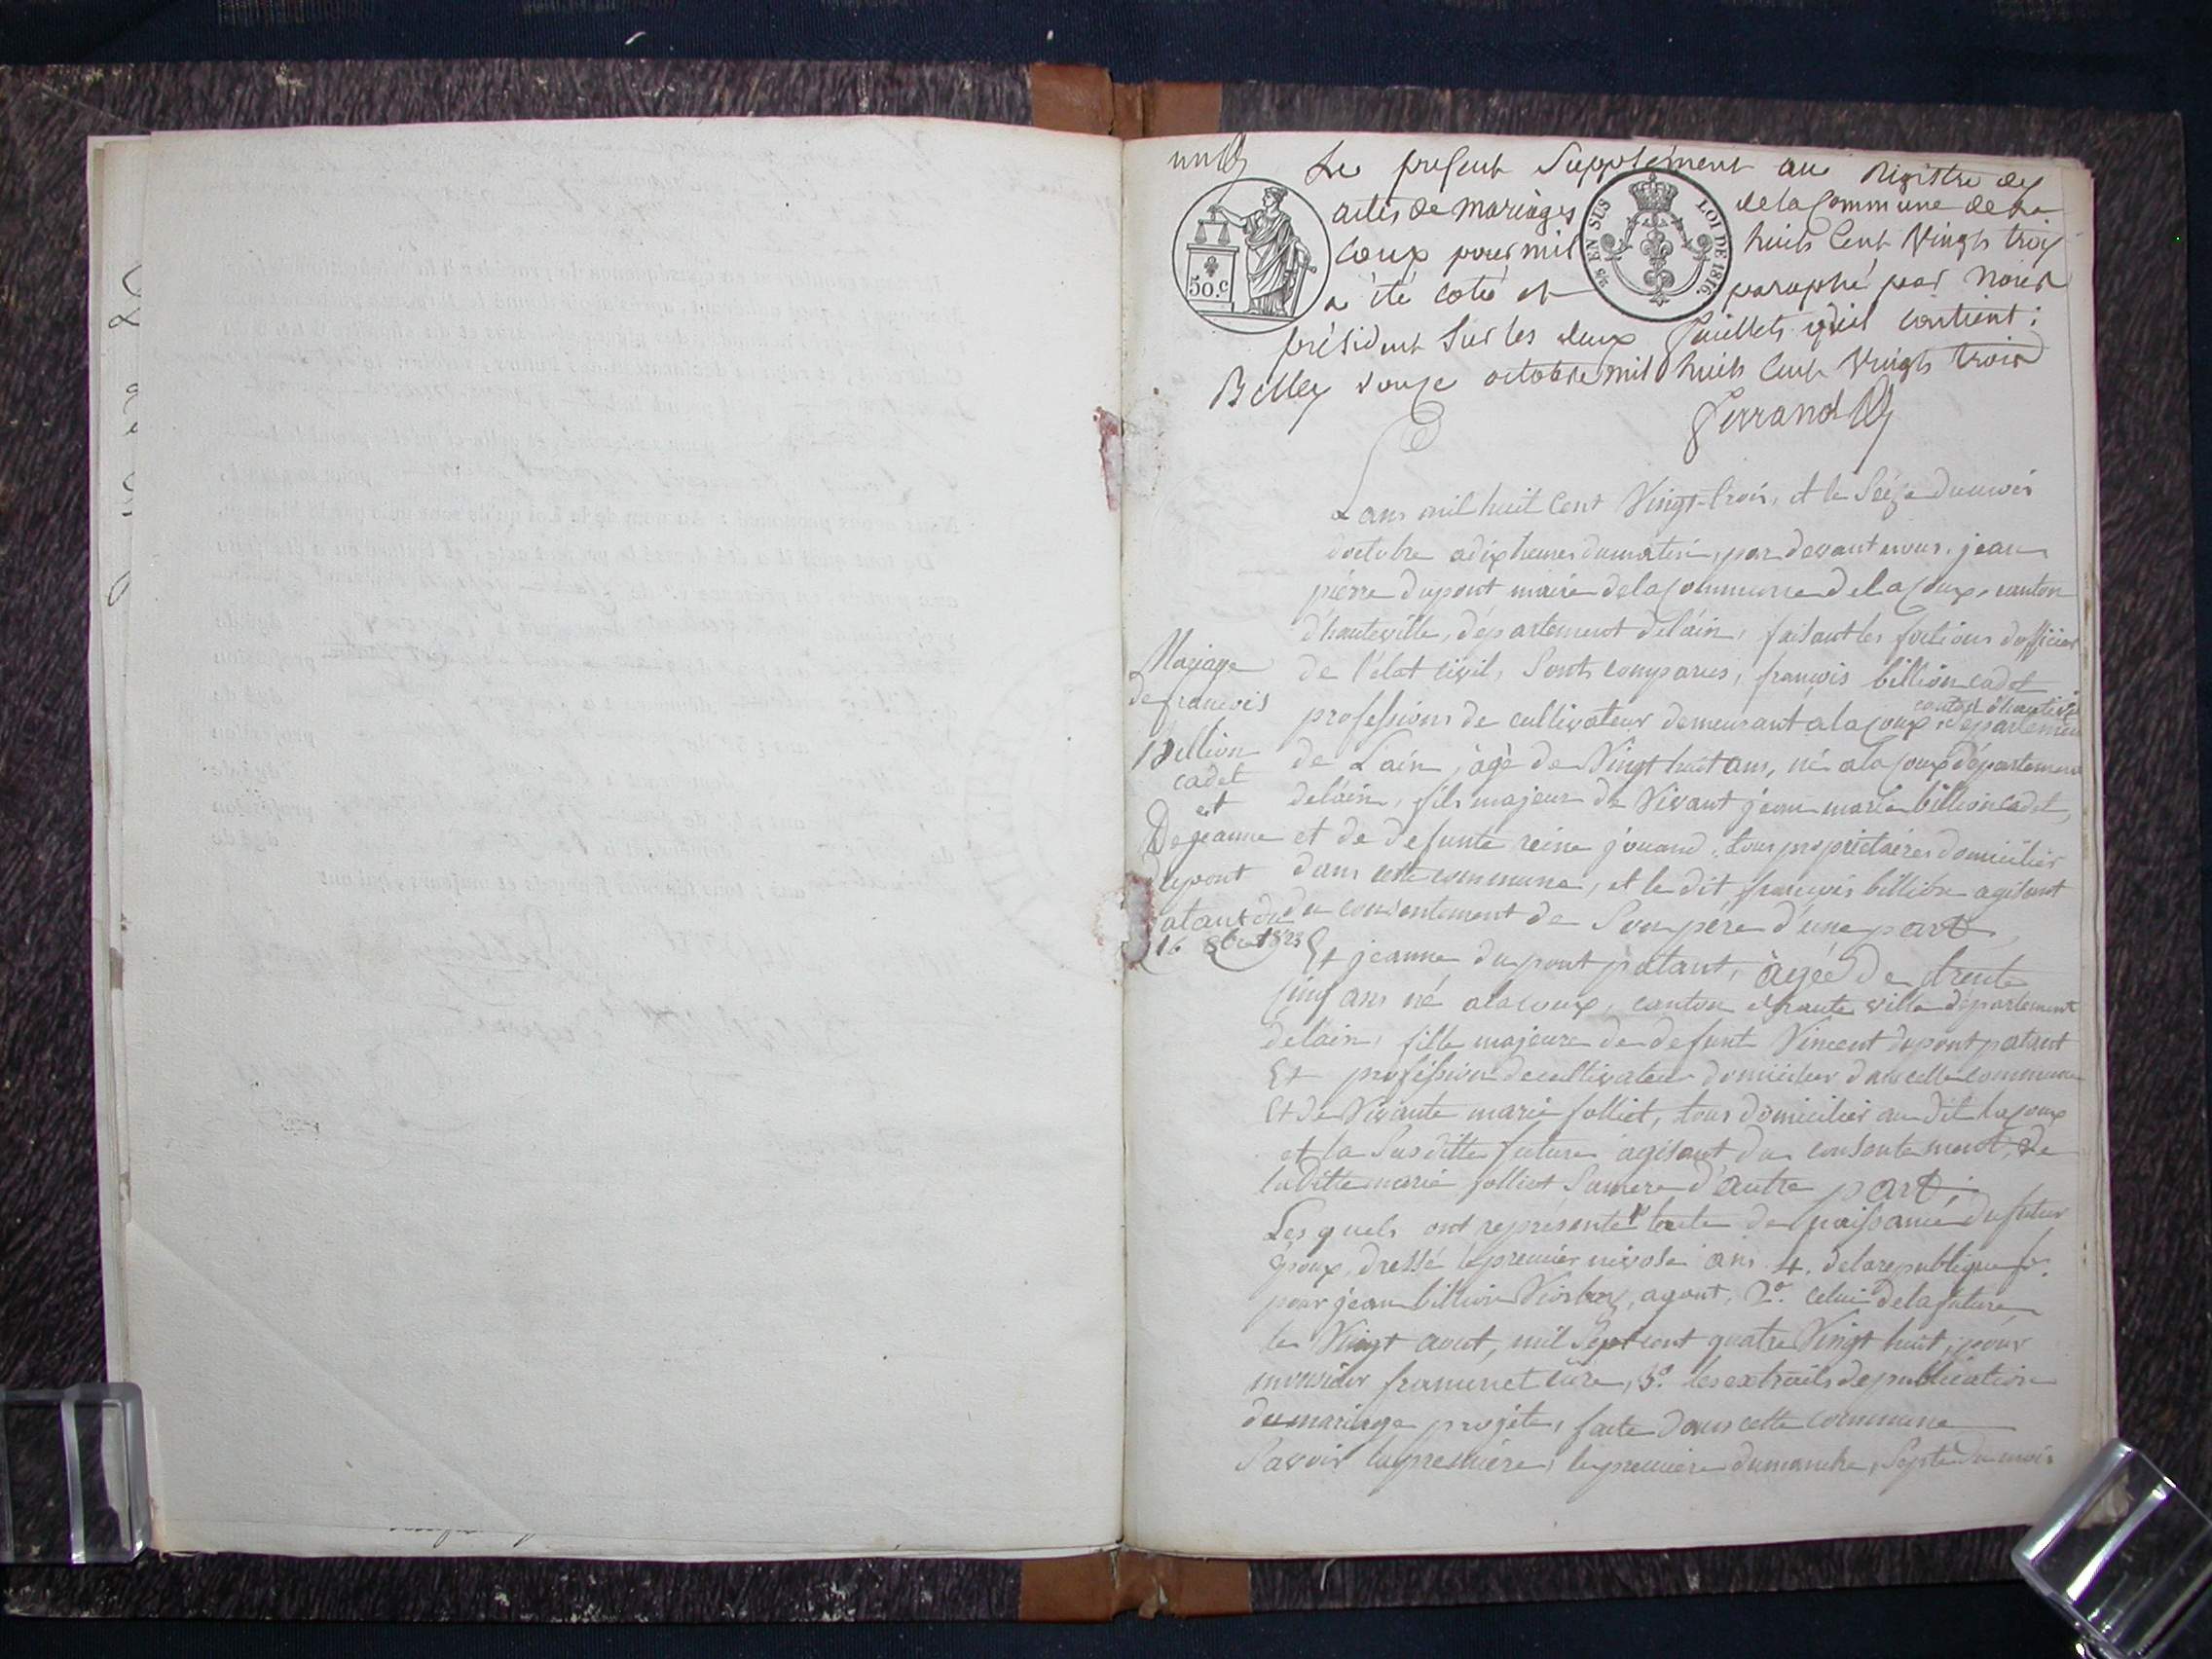 Le présent Supplément au Registre des
actes de mariages de la Commune de La
coux pour mil huit Cent Vingt trois
a été coté et paraphé par Nous
président sur les deux feuillets qu'il contient :
Belley douze octobre mil huit Cent Vingt trois
Ferrand
50.c
5/8 EN SUS LOI DE 1816.
Lans mil huit Cent Vingt-trois, et le Seize du mois
doctobre a dix heures du matin, par devant nous, jean
pierre dupont maire de la Commune de la Coux, canton
d'hauteville, département de lain, faisant les fontions dofficier
de l'élat civil, Sonts comparus, françois billion cadet
canton d'hauteville
professions de cultivateur demeurant a la coux, département
de Lain, âgé de Vingt huit ans, né a la coux département
de lain, fils majeur de Vivant jean marie billion cadet,
et de defunte reine jouand, tous propriétaires domicilier
dans cette commune, et le dit françois billion agisant
du consentement de Son père d'une part
Et jeanne dupont patant, âgée de trente
Cinq ans né a lacoux, canton dhaute ville département
de lain, fille majeure de defunt Vincent dupont patant
Et profession de cultivateur domicilier dans cette commune
Et de Vivante marie jolliet, tous domicilier au dit lacoux
et la Susditte future agisant du consentement, de
laditte marie jolliet Samere d'autre part ;
Les quels ont représenté 1º lacte de naissance du futur
Époux, dressé le premier nivose ans 4. de la republique fr.
par jean billion agant, 2º. celui de la future
le Vingt aout, mil Sept cent quatre Vingt huit, pour
monsieur curé, 3º. les extraits de publication
du mariage projeté, faite dans cette commune
Savoir la première, le première dimanche, Septe du mois
Mariage
de francois
Billion
cadet
et
De jeanne
dupont
patant du
16 8bre 1823